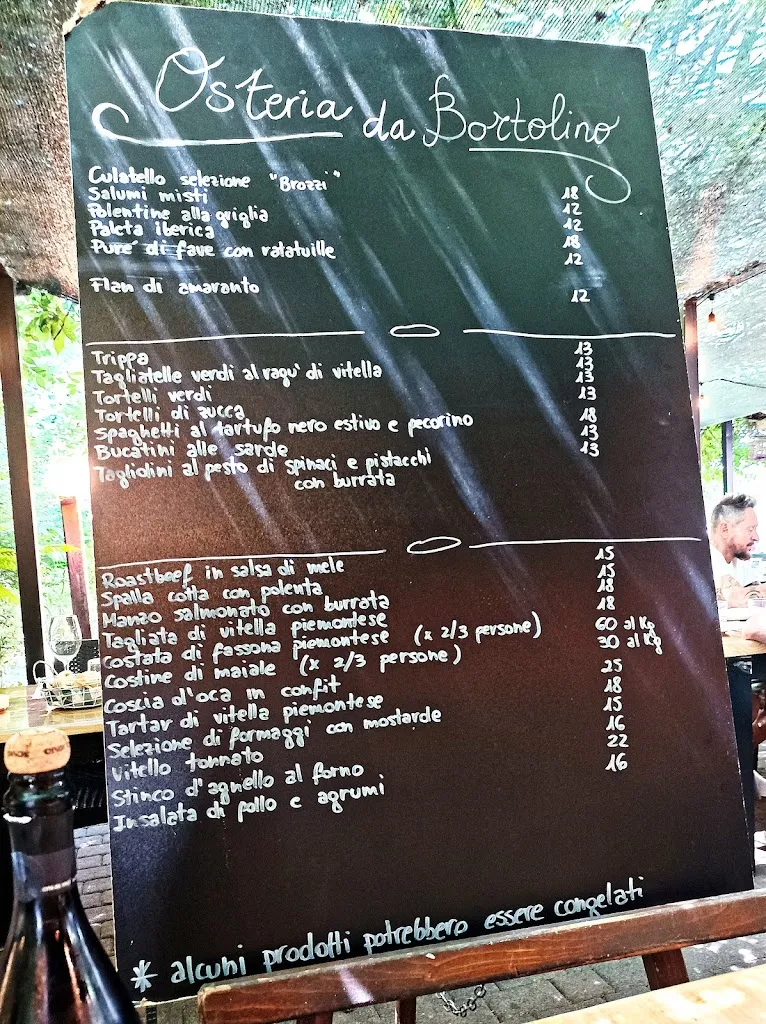 Osteria da Bortolino
Culatello selezione "Brozzi" 18
Salumi misti 12
Polentine alla griglia 12
Paleta iberica 18
Pure' di fave con ratatuille 12
Flan di amaranto 12
Trippa 13
Tagliatelle verdi al ragu' di vitella 13
Tortelli verdi 13
Tortelli di zucca 13
Spaghetti al tartufo nero estivo e pecorino 18
Bucatini alle sarde 13
Tagliolini al pesto di spinaci e pistacchi 13
con burrata
Roastbeef in salsa di mele 15
Spalla cotta con polenta 15
Manzo salmonato con burrata 18
Tagliata di vitella piemontese 18
Costata di fassona piemontese (x 2/3 persone) 60 al Kg
Costine di maiale (x 2/3 persone) 30 al Kg
Coscia d'oca in confit 25
Tartar di vitella piemontese 18
Selezione di formaggi con mostarde 15
Vitello tonnato 16
Stinco d'agnello al forno 22
Insalata di pollo e agrumi 16
* alcuni prodotti potrebbero essere congelati